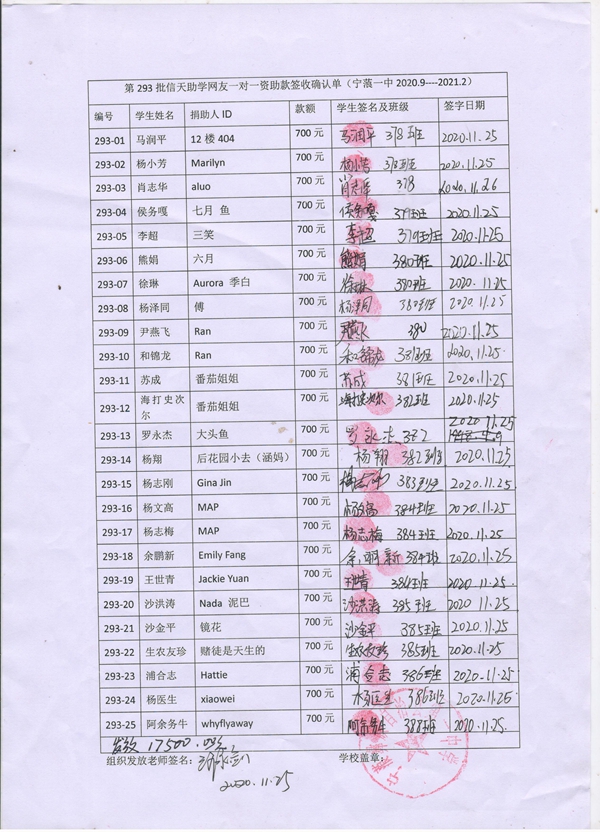 第 293 批信天助学网友一对一资助款签收确认单（宁蒗一中 2020.9----2021.2）
编号 学生姓名 捐助人 ID 款额 学生签名及班级 签字日期
293-01 马润平 12 楼 404 700 元 马润平 378班 2020.11.25
293-02 杨小芳 Marilyn 700 元 杨小芳 378班 2020.11.25
293-03 肖志华 aluo 700 元 肖志华 378 2020.11.26
293-04 侯务嘎 七月 鱼 700 元 侯务嘎 379班 2020.11.25
293-05 李超 三笑 700 元 李超 379班 2020.11.25
293-06 熊娟 六月 700 元 熊娟 380班 2020.11.25
293-07 徐琳 Aurora 季白 700 元 徐琳 380班 2020.11.25
293-08 杨泽同 傅 700 元 杨泽同 380班 2020.11.25
293-09 尹燕飞 Ran 700 元 380 2020.11.25
293-10 和锦龙 Ran 700 元 和锦龙 381班 2020.11.25
293-11 苏成 番茄姐姐 700 元 苏成 381班 2020.11.25
293-12 海打史次尔 番茄姐姐 700 元 海打史次尔 382班 2020.11.25
293-13 罗永杰 大头鱼 700 元 罗永杰 382 2020.11.25
293-14 杨翔 后花园小去（涵妈） 700 元 杨翔 382班 2020.11.25
293-15 杨志刚 Gina Jin 700 元 杨志刚 383班 2020.11.25
293-16 杨文高 MAP 700 元 杨文高 384班 2020.11.25
293-17 杨志梅 MAP 700 元 杨志梅 384班 2020.11.25
293-18 余鹏新 Emily Fang 700 元 余鹏新 384班 2020.11.25
293-19 王世青 Jackie Yuan 700 元 王世青 384班 2020 11.25
293-20 沙洪涛 Nada 泥巴 700 元 沙洪涛 385班 2020 11.25
293-21 沙金平 镜花 700 元 沙金平 385班 2020.11.25
293-22 生农友珍 赌徒是天生的 700 元 生农友珍 385班 2020.11.25
293-23 浦合志 Hattie 700 元 浦合志 386班 2020.11.25
293-24 杨医生 xiaowei 700 元 杨医生 386班 2020.11.25
293-25 阿余务牛 whyflyaway 700 元 阿余务牛 388班 2020.11.25
发放 17500.00元
组织发放老师签名： 学校盖章：
2020.11.25